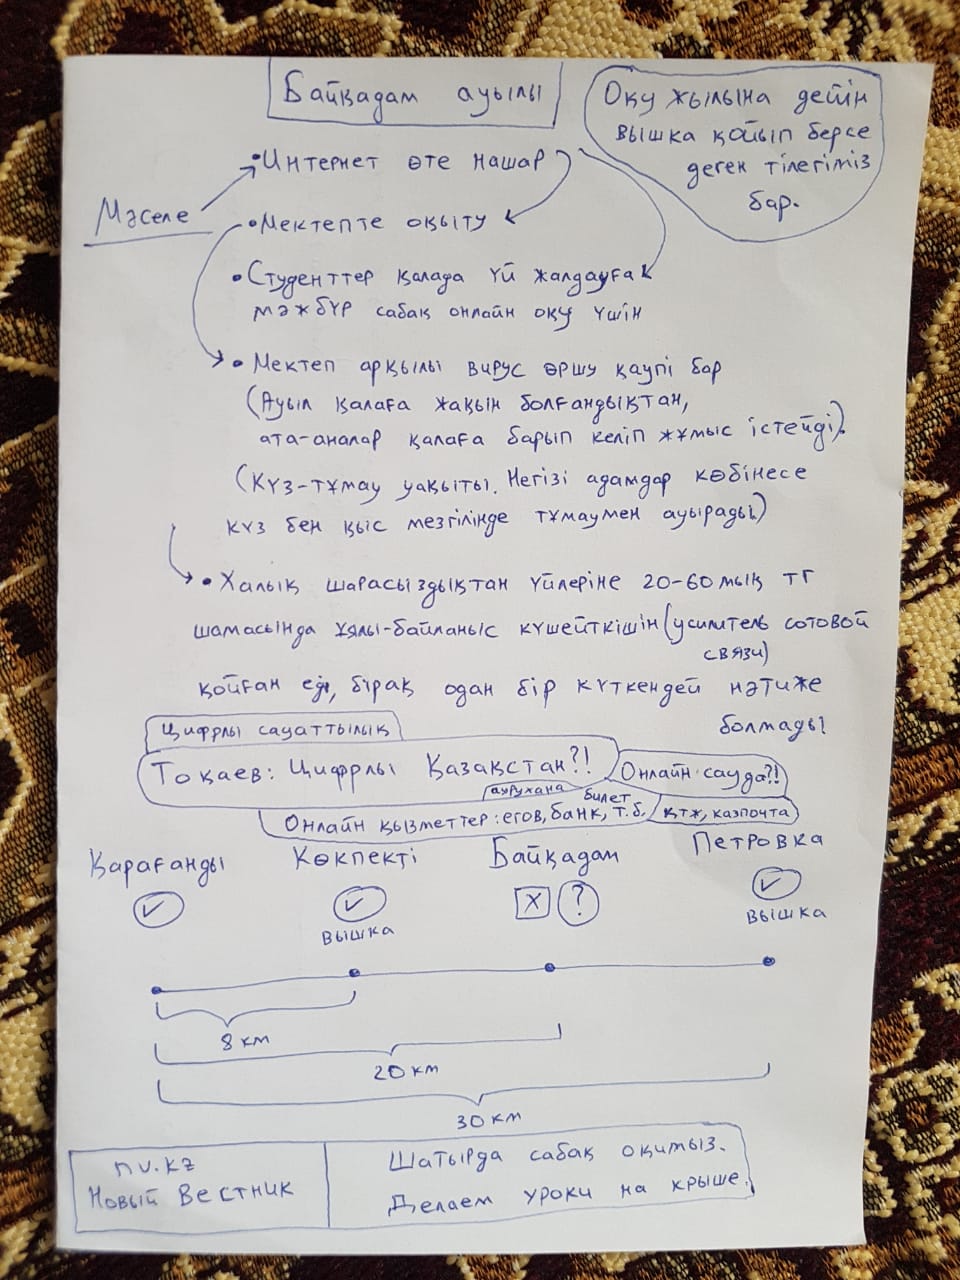 Байқадам ауылы
Оқу жылына дейін
вышка қойып берсе
деген тілегіміз
бар.
• Интернет өте нашар
Мәселе
• Мектепте оқыту
• Студенттер қалада үй жалдауға
мәжбүр сабақ онлайн оқу үшін
• Мектеп арқылы вирус өршу қаупі бар
(Ауыл қалаға жақын болғандықтан,
ата-аналар қалаға барып келіп жұмыс істейді).
(Күз-тұмау уақыты. Негізі адамдар көбінесе
күз бен қыс мезгілінде тұмаумен ауырады.)
• Халық шарасыздықтан үйлеріне 20-60 мың тг
шамасында ұялы-байланыс күшейткішін (усилитель сотовой
связи)
қойған еді, бірақ одан бір күткендей нәтиже
болмады!
Цифрлы сауаттылық
Тоқаев: Цифрлы Қазақстан?!
Онлайн-сауда?!
аурухана билет
Онлайн қызметтер: егов, банк, т.б.
ҚТЖ, казпочта
Қарағанды Көкпекті Байқадам Петровка
✓ ✓ X ? ✓
вышка вышка
8 км
20 км
30 км
nv.kz
Новый Вестник
Шатырда сабақ оқимыз.
Делаем уроки на крыше.